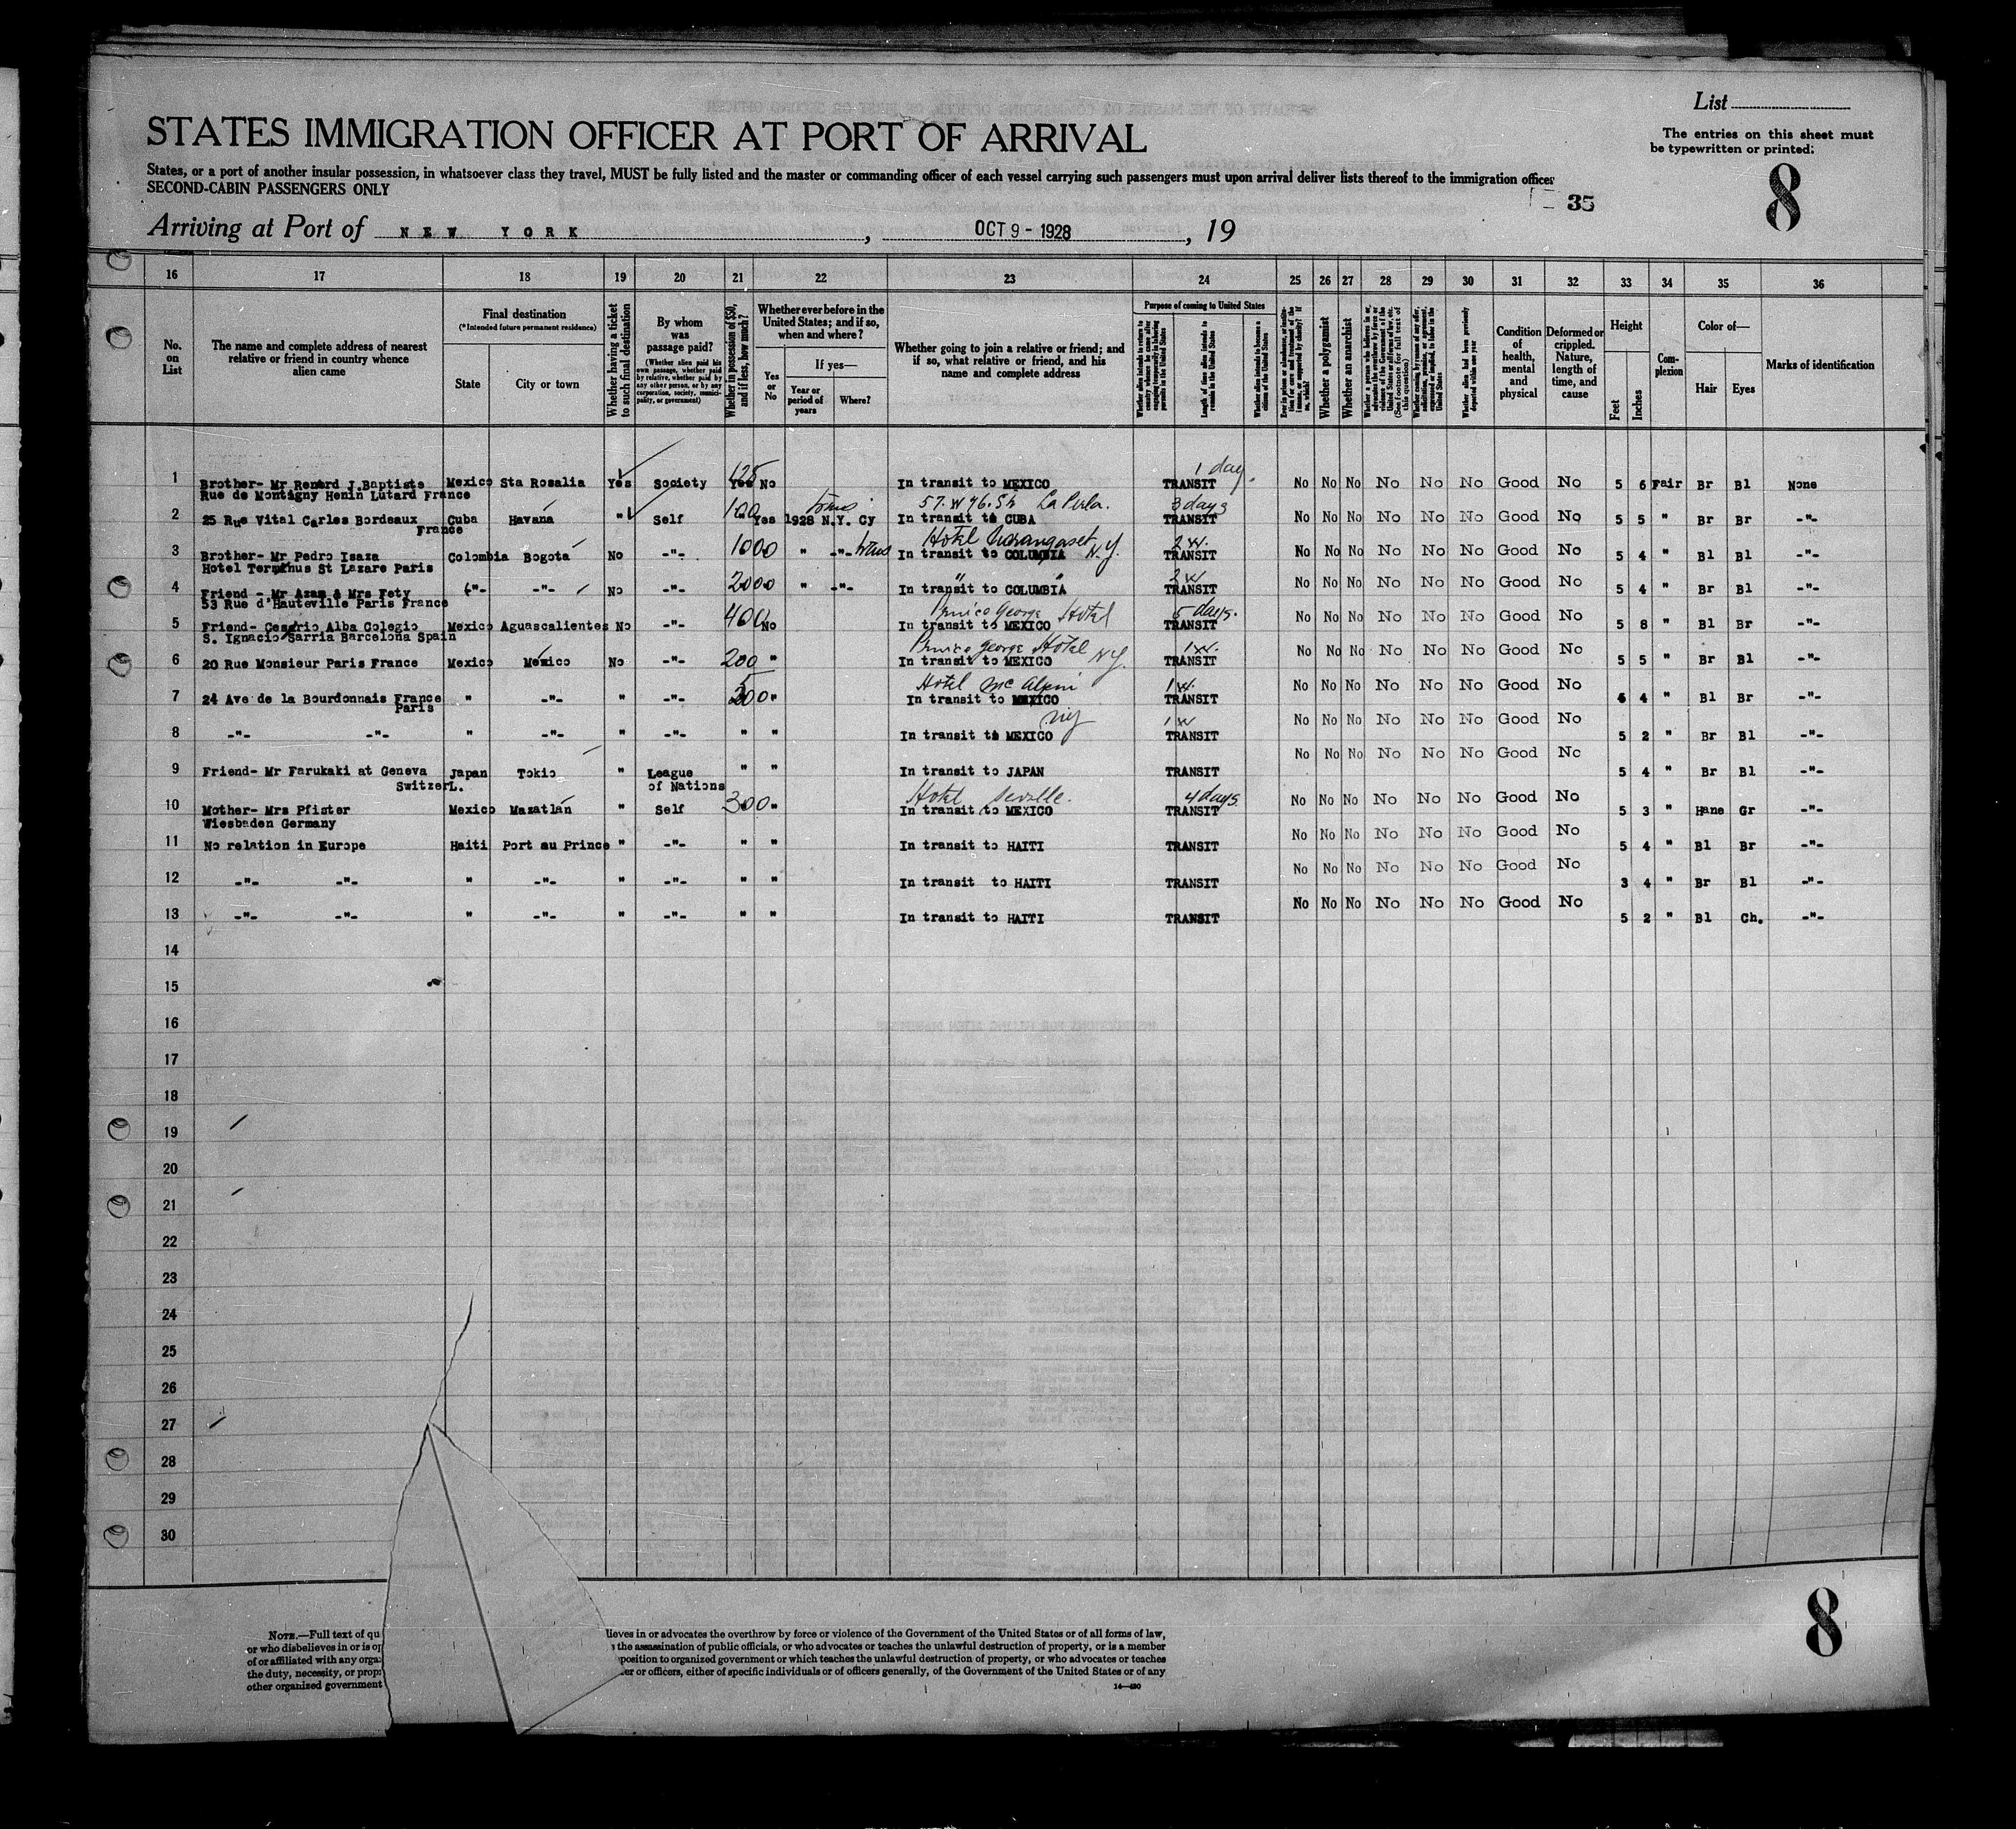 List
STATES IMMIGRATION OFFICER AT PORT OF ARRIVAL
The entries on this sheet must
be typewritten or printed.
States, or a port of another insular possession, in whatsoever class they travel, MUST be fully listed and the master or commanding officer of each vessel carrying such passengers must upon arrival deliver lists thereof to the immigration officer
SECOND-CABIN PASSENGERS ONLY
35
8
Arriving at Port of NEW YORK, OCT 9 - 1928, 19
16 17 18 19 20 21 22 23 24 25 26 27 28 29 30 31 32 33 34 35 36
No. on List
The name and complete address of nearest relative or friend in country whence alien came
Final destination
(*Intended future permanent residence)
State
City or town
Whether having a ticket to such final destination
By whom was passage paid?
(Whether alien paid his own passage, whether paid by relative, whether paid by any other person, or by any corporation, society, municipality, or government)
Whether in possession of $50, and if less, how much?
Whether ever before in the United States; and if so, when and where?
Yes or No
If yes—
Year or period of years
Where?
Whether going to join a relative or friend; and if so, what relative or friend, and his name and complete address
Purpose of coming to United States
Length of time alien intends to remain in the United States
Whether alien intends to become a citizen of the United States
Whether a polygamist
Whether an anarchist
Whether alien had been previously deported within one year
Condition of health, mental and physical
Deformed or crippled. Nature, length of time, and cause
Height
Feet
Inches
Complexion
Color of—
Hair
Eyes
Marks of identification
1 Brother- Mr Renard J.Baptiste Mexico Sta Rosalia Yes Society 125 Yes No In transit to MEXICO 1 day TRANSIT No No No No No No Good No 5 6 Fair Br Bl None
Rue de Montigny Henin Lutard France
57.W 76.St La Perla. 3 days
2 25 Rue Vital Carles Bordeaux Cuba Havana " Self 100 " Yes 1928 N.Y. Cy In transit to CUBA TRANSIT No No No No No No Good No 5 5 " Br Br -"-
France
Hotel Narangaset N.Y. 2 w.
3 Brother- Mr Pedro Isaza Colombia Bogota No -"- 1000 " -"- In transit to COLUMBIA TRANSIT No No No No No No Good No 5 4 " Bl Bl -"-
Hotel Terminus St Lazare Paris
4 Friend - Mr Azam & Mrs Fety -"- -"- No -"- 2000 " -"- In transit to COLUMBIA 2 w TRANSIT No No No No No No Good No 5 4 " Br Bl -"-
53 Rue d'Hauteville Paris France
Prince George Hotel 5 days.
5 Friend- Cesario Alba Colegio Mexico Aguascalientes No -"- 400 No In transit to MEXICO TRANSIT No No No No No No Good No 5 8 " Bl Br -"-
S. Ignacio Sarria Barcelona Spain
Prince George Hotel N.Y. 1 w.
6 20 Rue Monsieur Paris France Mexico Mexico No -"- 200 " In transit to MEXICO TRANSIT No No No No No No Good No 5 5 " Br Bl -"-
Hotel Mc Alpin 1 w.
7 24 Ave de la Bourdonnais France " -"- " -"- In transit to MEXICO TRANSIT No No No No No No Good No 4 " Bl Br -"-
Paris
8 -"- -"- " -"- " -"- " " In transit to MEXICO NY 1 w TRANSIT No No No No No No Good No 5 2 " Br Bl -"-
9 Friend- Mr Farukaki at Geneva Japan Tokio " League " " In transit to JAPAN TRANSIT No No No No No No Good No 5 4 " Br Bl -"-
Switzerl. of Nations
Hotel Seville. 4 days.
10 Mother- Mrs Pfister Mexico Mazatlan " Self 300 " In transit to MEXICO TRANSIT No No No No No No Good No 5 3 " Hane Gr -"-
Wiesbaden Germany
11 No relation in Europe Haiti Port au Prince " -"- " " In transit to HAITI TRANSIT No No No No No No Good No 5 4 " Bl Br -"-
12 -"- -"- " -"- " -"- " " In transit to HAITI TRANSIT No No No No No No Good No 3 4 " Br Bl -"-
13 -"- -"- " -"- " -"- " " In transit to HAITI TRANSIT No No No No No No Good No 5 2 " Bl Ch. -"-
14
15
16
17
18
19
20
21
22
23
24
25
26
27
28
29
30
8
NOTE.—Full text of qu lieves in or advocates the overthrow by force or violence of the Government of the United States or of all forms of law,
or who disbelieves in or is op the assassination of public officials, or who advocates or teaches the unlawful destruction of property, or is a member
of or affiliated with any orga position to organized government or which teaches the unlawful destruction of property, or who advocates or teaches
the duty, necessity, or prop er or officers, either of specific individuals or of officers generally, of the Government of the United States or of any
other organized government
14—490